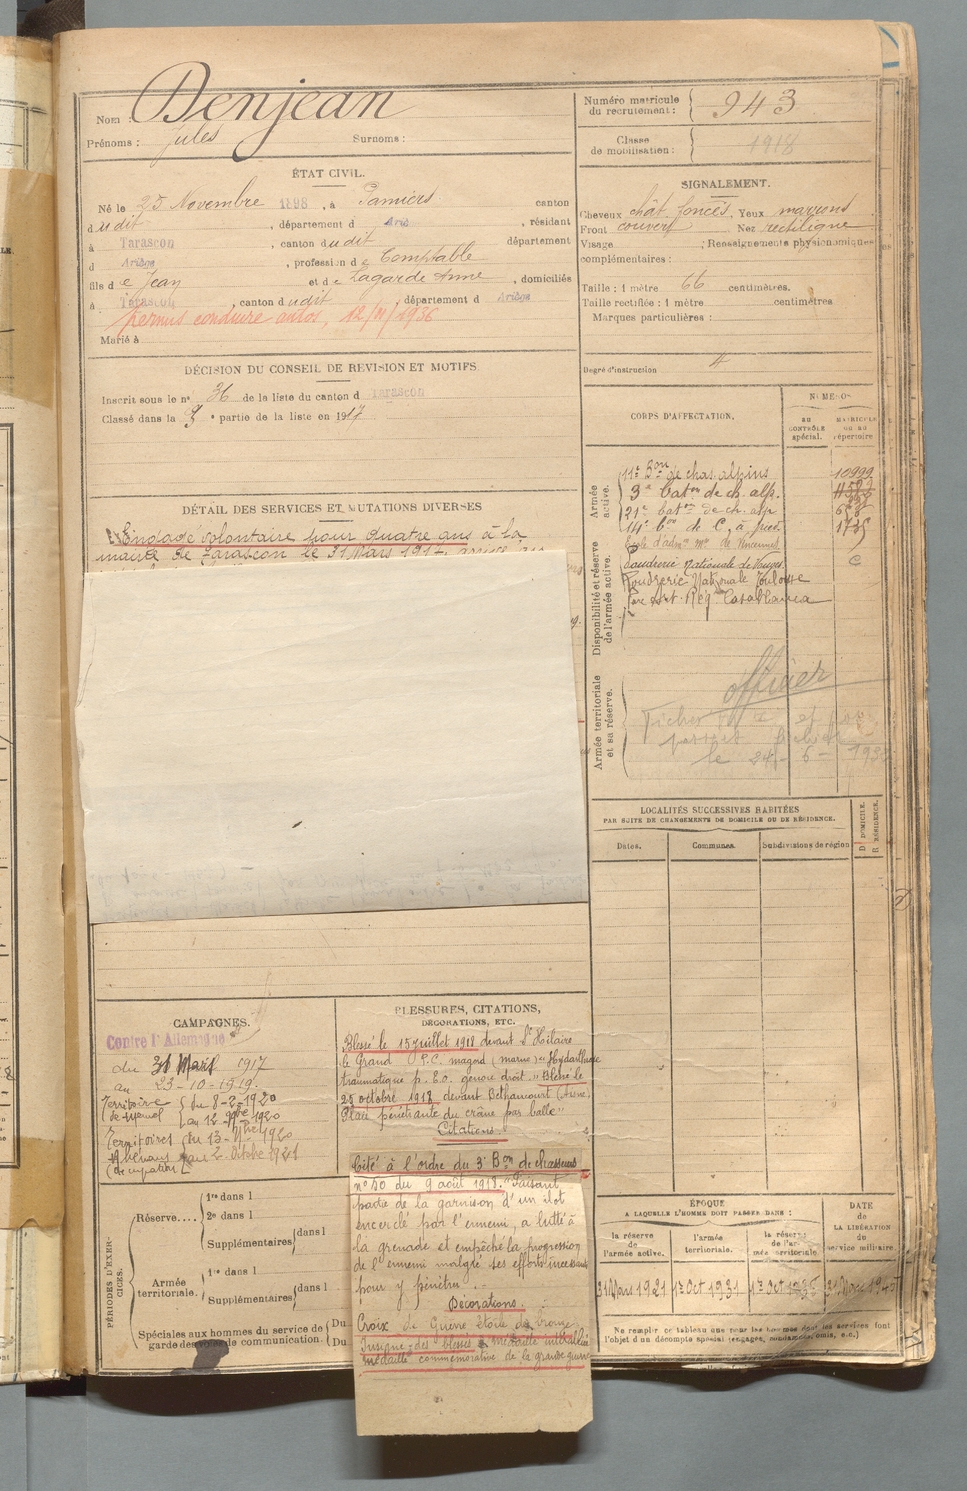 Nom : Denjean
Prénoms : Jules Surnoms :
Numéro matricule du recrutement : 943
Classe de mobilisation : 1918
ÉTAT CIVIL.
Né le 25 Novembre 1898, à Pamiers canton
dudit, département d Ariège, résidant
à Tarascon, canton dudit département
d Ariège, profession de Comptable
fils de Jean et de Lagarde Anne, domiciliés
à Tarascon, canton dudit, département d Ariège
permis conduire autos, 12/11/1936
Marié à
SIGNALEMENT.
Cheveux chât. foncés, Yeux marrons
Front couvert Nez rectiligne
Visage ; Renseignements physionomiques
complémentaires :
Taille : 1 mètre 66 centimètres.
Taille rectifiée : 1 mètre centimètres
Marques particulières :
Degré d'instruction 4
DÉCISION DU CONSEIL DE REVISION ET MOTIFS
Inscrit sous le n° 36 de la liste du canton d Tarascon
Classé dans la ° partie de la liste en 1917
DÉTAIL DES SERVICES ET MUTATIONS DIVERSES
Engagé volontaire pour quatre ans à la
mairie de Tarascon le 31 Mars 191
CORPS D'AFFECTATION.
NUMÉROS
AU CONTRÔLE spécial.
MATRICULE OU AU répertoire
Armée active.
11e Bon de chas. alpins 10999
3e baton de ch. alp.
21e baton de ch. alp
14e Bon de C. à pied 1735
École d'adm. de Vincennes
Disponibilité et réserve de l'armée active.
Poudrerie Nationale de Vonges C
Poudrerie Nationale Toulouse
Parc Art. Rég. Casablanca
Armée territoriale et sa réserve.
officier
le 24 - 6 - 193
LOCALITÉS SUCCESSIVES HABITÉES
PAR SUITE DE CHANGEMENTS DE DOMICILE OU DE RÉSIDENCE.
Dates. Communes. Subdivisions de région
D. DOMICILE. R. RÉSIDENCE.
CAMPAGNES.
Contre l'Allemagne
du 31 Mars 1917
au 23-10-1919.
Territoire de Memel du 8-2-1920
au 12 9bre 1920
Territoires Rhénans du 13-9bre 1920
(occupation) au 2 Octobre 1921
BLESSURES, CITATIONS,
DÉCORATIONS, ETC.
Blessé le 15 juillet 1918 devant St Hilaire
le Grand P.C. magord (marne) "Hydarthrose
traumatique p. E.o. genou droit." Blessé le
25 octobre 1918 devant Bethancourt (Aisne)
"Plaie pénétrante du crâne par balle"
Citations
Cité à l'ordre du 3e Bon de chasseurs
n° 50 du 9 août 1918. "Faisant
partie de la garnison d'un ilot
encerclé par l'ennemi, a lutté à
la grenade et empêché la progression
de l'ennemi malgré ses efforts incessants
pour y pénétrer".
Décorations.
Croix de Guerre étoile de bronze
Insigne des blessés médaille interalliée
médaille commémorative de la grande guerre
PÉRIODES D'EXERCICES.
Réserve.... 1re dans l
2e dans l
Supplémentaires dans l
Armée territoriale. 1re dans l
Supplémentaires dans l
Spéciales aux hommes du service de garde des voies de communication. Du
Du
ÉPOQUE
A LAQUELLE L'HOMME DOIT PASSER DANS :
la réserve de l'armée active.
l'armée territoriale.
la réserve de l'armée territoriale
DATE de LA LIBÉRATION du service militaire.
31 Mars 1921 1er Oct 1931
Ne remplir ce tableau que pour les hommes dont les services font
l'objet d'un décompte spécial (engagés, condamnés, omis, e.c.)